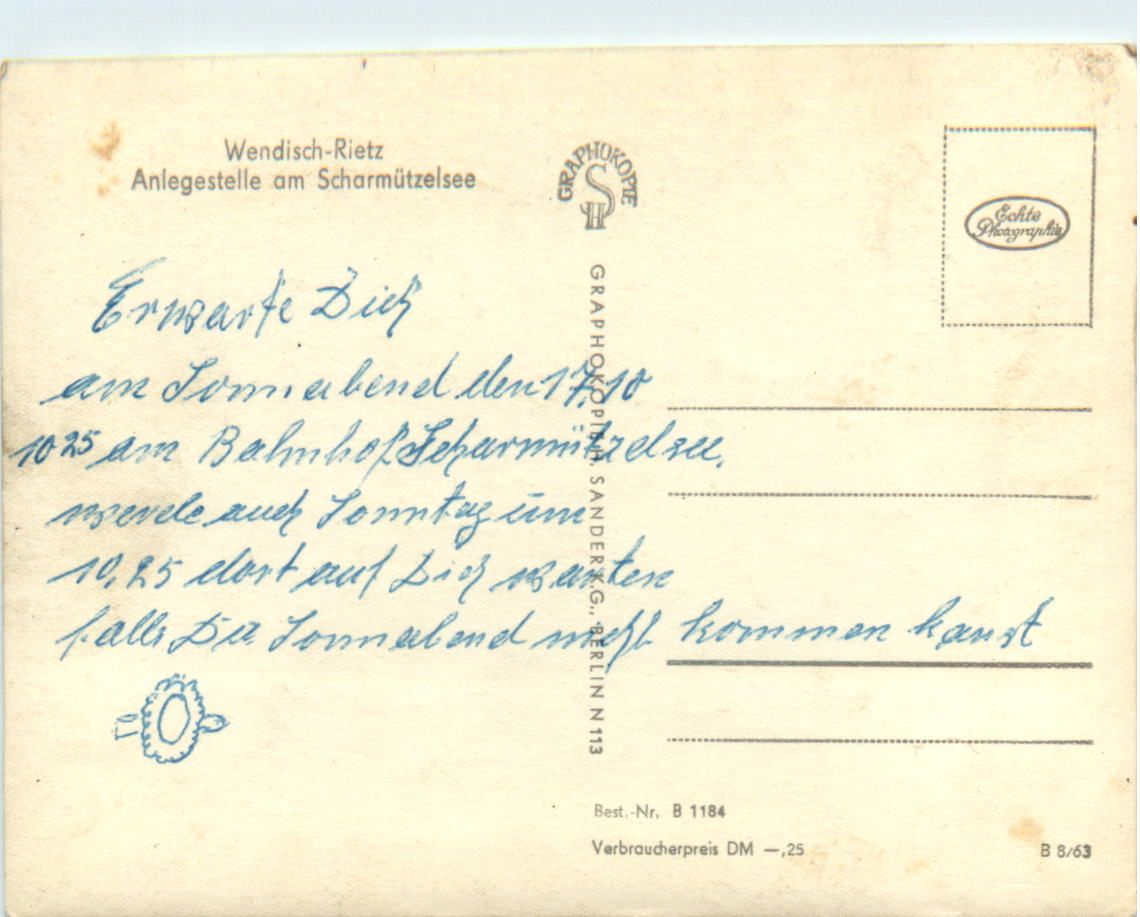 Wendisch-Rietz
Anlegestelle am Scharmützelsee
GRAPHOKOPIE
SH
Echte
Photographie
Erwarte Dich
am Sonnabend den 17.10
10 25 am Bahnhof Scharmützelsee,
werde auch Sonntag um
10,25 dort auf Dich warten
falls Du Sonnabend nicht kommen kanst
GRAPHOKOPIE H. SANDER K.G., BERLIN N 113
Best.-Nr. B 1184
Verbraucherpreis DM —,25
B 8/63